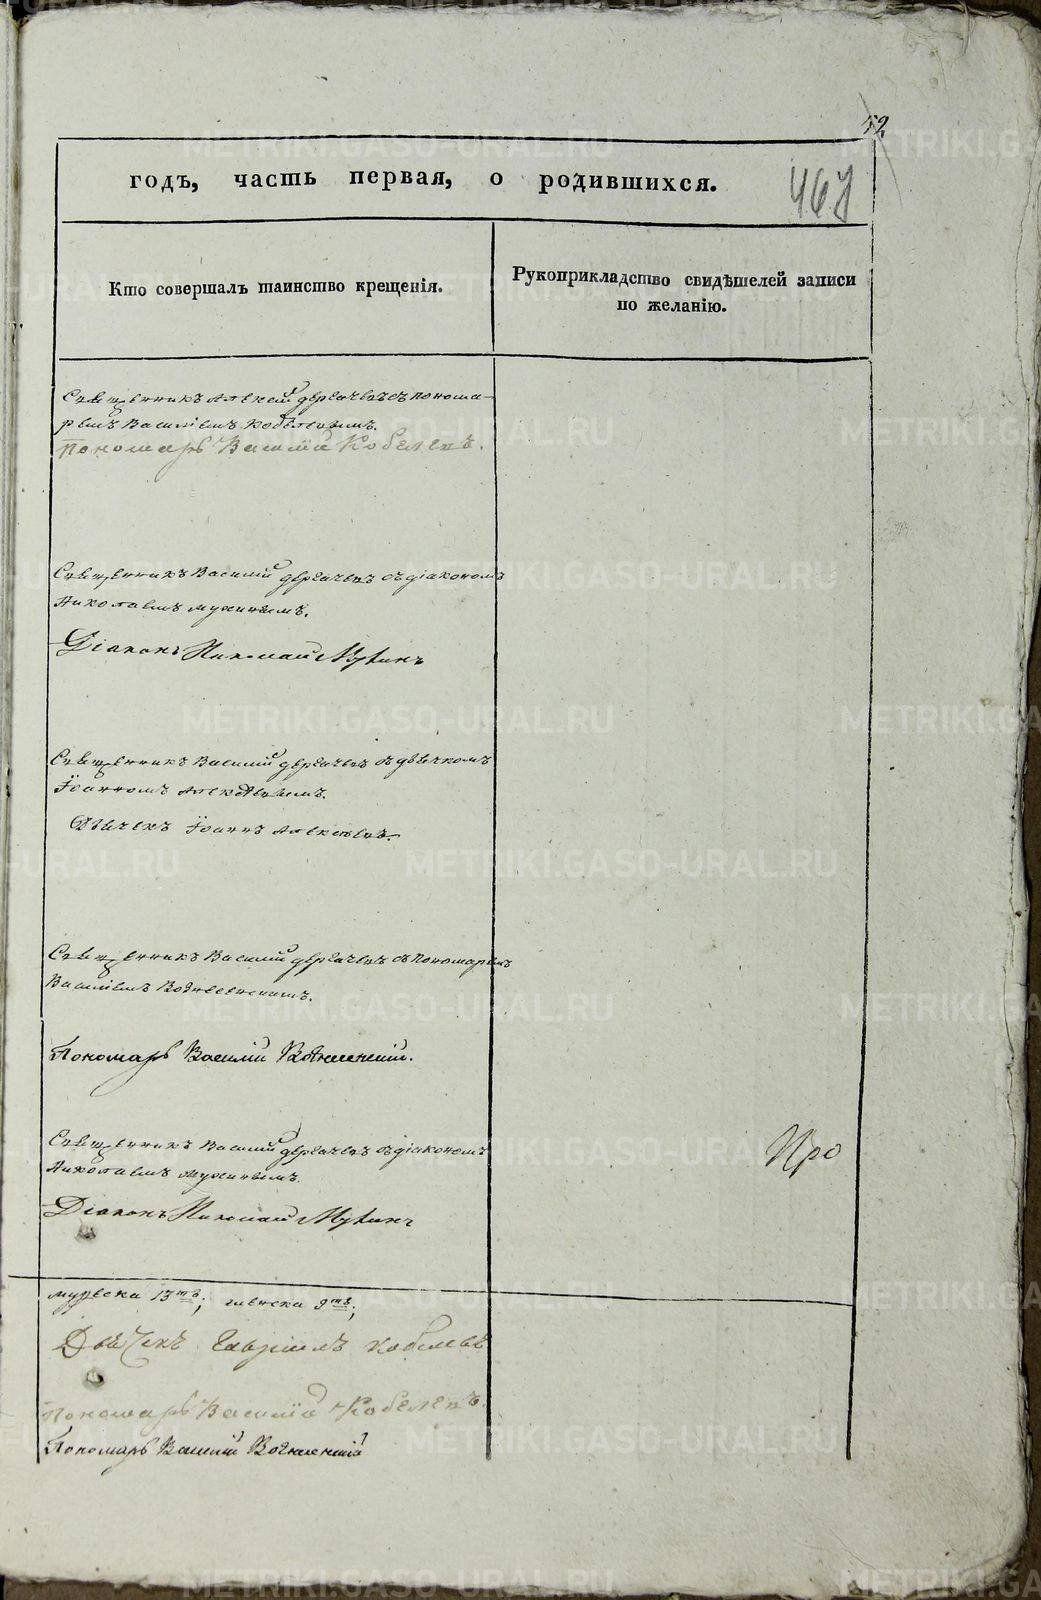 52
годъ, часть первая, о родившихся.
467
Кто совершалъ таинство крещенія.
Рукоприкладство свидѣтелей записи
по желанію.
Священникъ Алексѣй Дергачевъ съ понома-
ремъ Василіемъ Кобелевымъ.
Пономарь Василій Кобелевъ.
Священникъ Василій Дергачевъ съ діакономъ
Николаемъ Мухинымъ.
Діаконъ Николай Мухинъ
Священникъ Василій Дергачевъ съ дьячкомъ
Іоанномъ Алексѣевымъ.
Дьячекъ Іоаннъ Алексѣевъ.
Священникъ Василій Дергачевъ съ пономаремъ
Василіемъ Вознесенскимъ.
Пономарь Василій Вознесенскій.
Священникъ Василій Дергачевъ съ діакономъ
Николаемъ Мухинымъ.
Діаконъ Николай Мухинъ
Про
мужеска 13ть; женска 9ть;
Дьячекъ Гавріилъ Кобелевъ
Пономарь Василій Кобелевъ.
Пономарь Василій Вознесенскій
METRIKI.GASO-URAL.RU